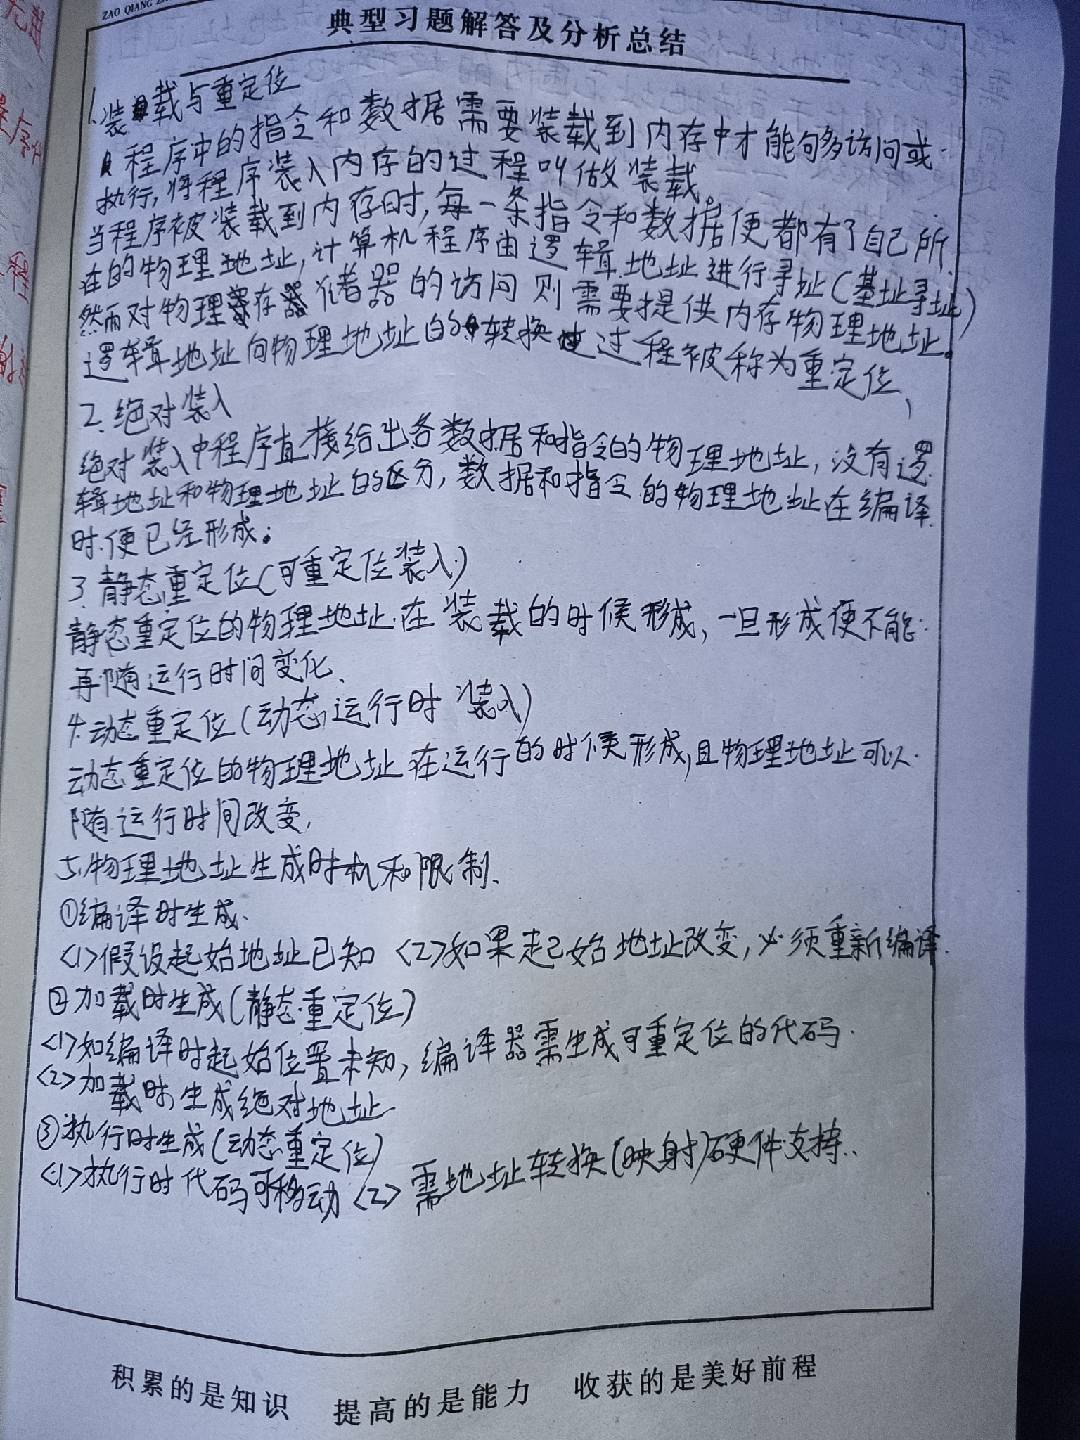 ZAO QIANG
典型习题解答及分析总结
1.装载与重定位
程序中的指令和数据需要装载到内存中才能句多访问或
执行,将程序装入内存的过程叫做装载。
当程序被装载到内存时,每一条指令和数据便都有了自己所
在的物理地址,计算机程序由逻辑地址进行寻址(基址寻址)
然而对物理存储器的访问则需要提供内存物理地址。
逻辑地址向物理地址的转换过程被称为重定位、
2.绝对装入
绝对装入中程序直接给出各数据和指令的物理地址,没有逻
辑地址和物理地址的区分,数据和指令的物理地址在编译
时便已经形成。
3.静态重定位(可重定位装入)
静态重定位的物理地址在装载的时候形成,一旦形成便不能
再随运行时间变化、
4.动态重定位(动态运行时装入)
动态重定位的物理地址在运行的时候形成,且物理地址可以
随运行时间改变,
5.物理地址生成时机和限制、
①编译时生成、
<1>假设起始地址已知 <2>如果起始地址改变,必须重新编译
②加载时生成(静态重定位)
<1>如编译时起始位置未知,编译器需生成可重定位的代码
<2>加载时生成绝对地址
③执行时生成(动态重定位)
<1>执行时代码可移动 <2>需地址转换(映射)硬件支持..
积累的是知识 提高的是能力 收获的是美好前程